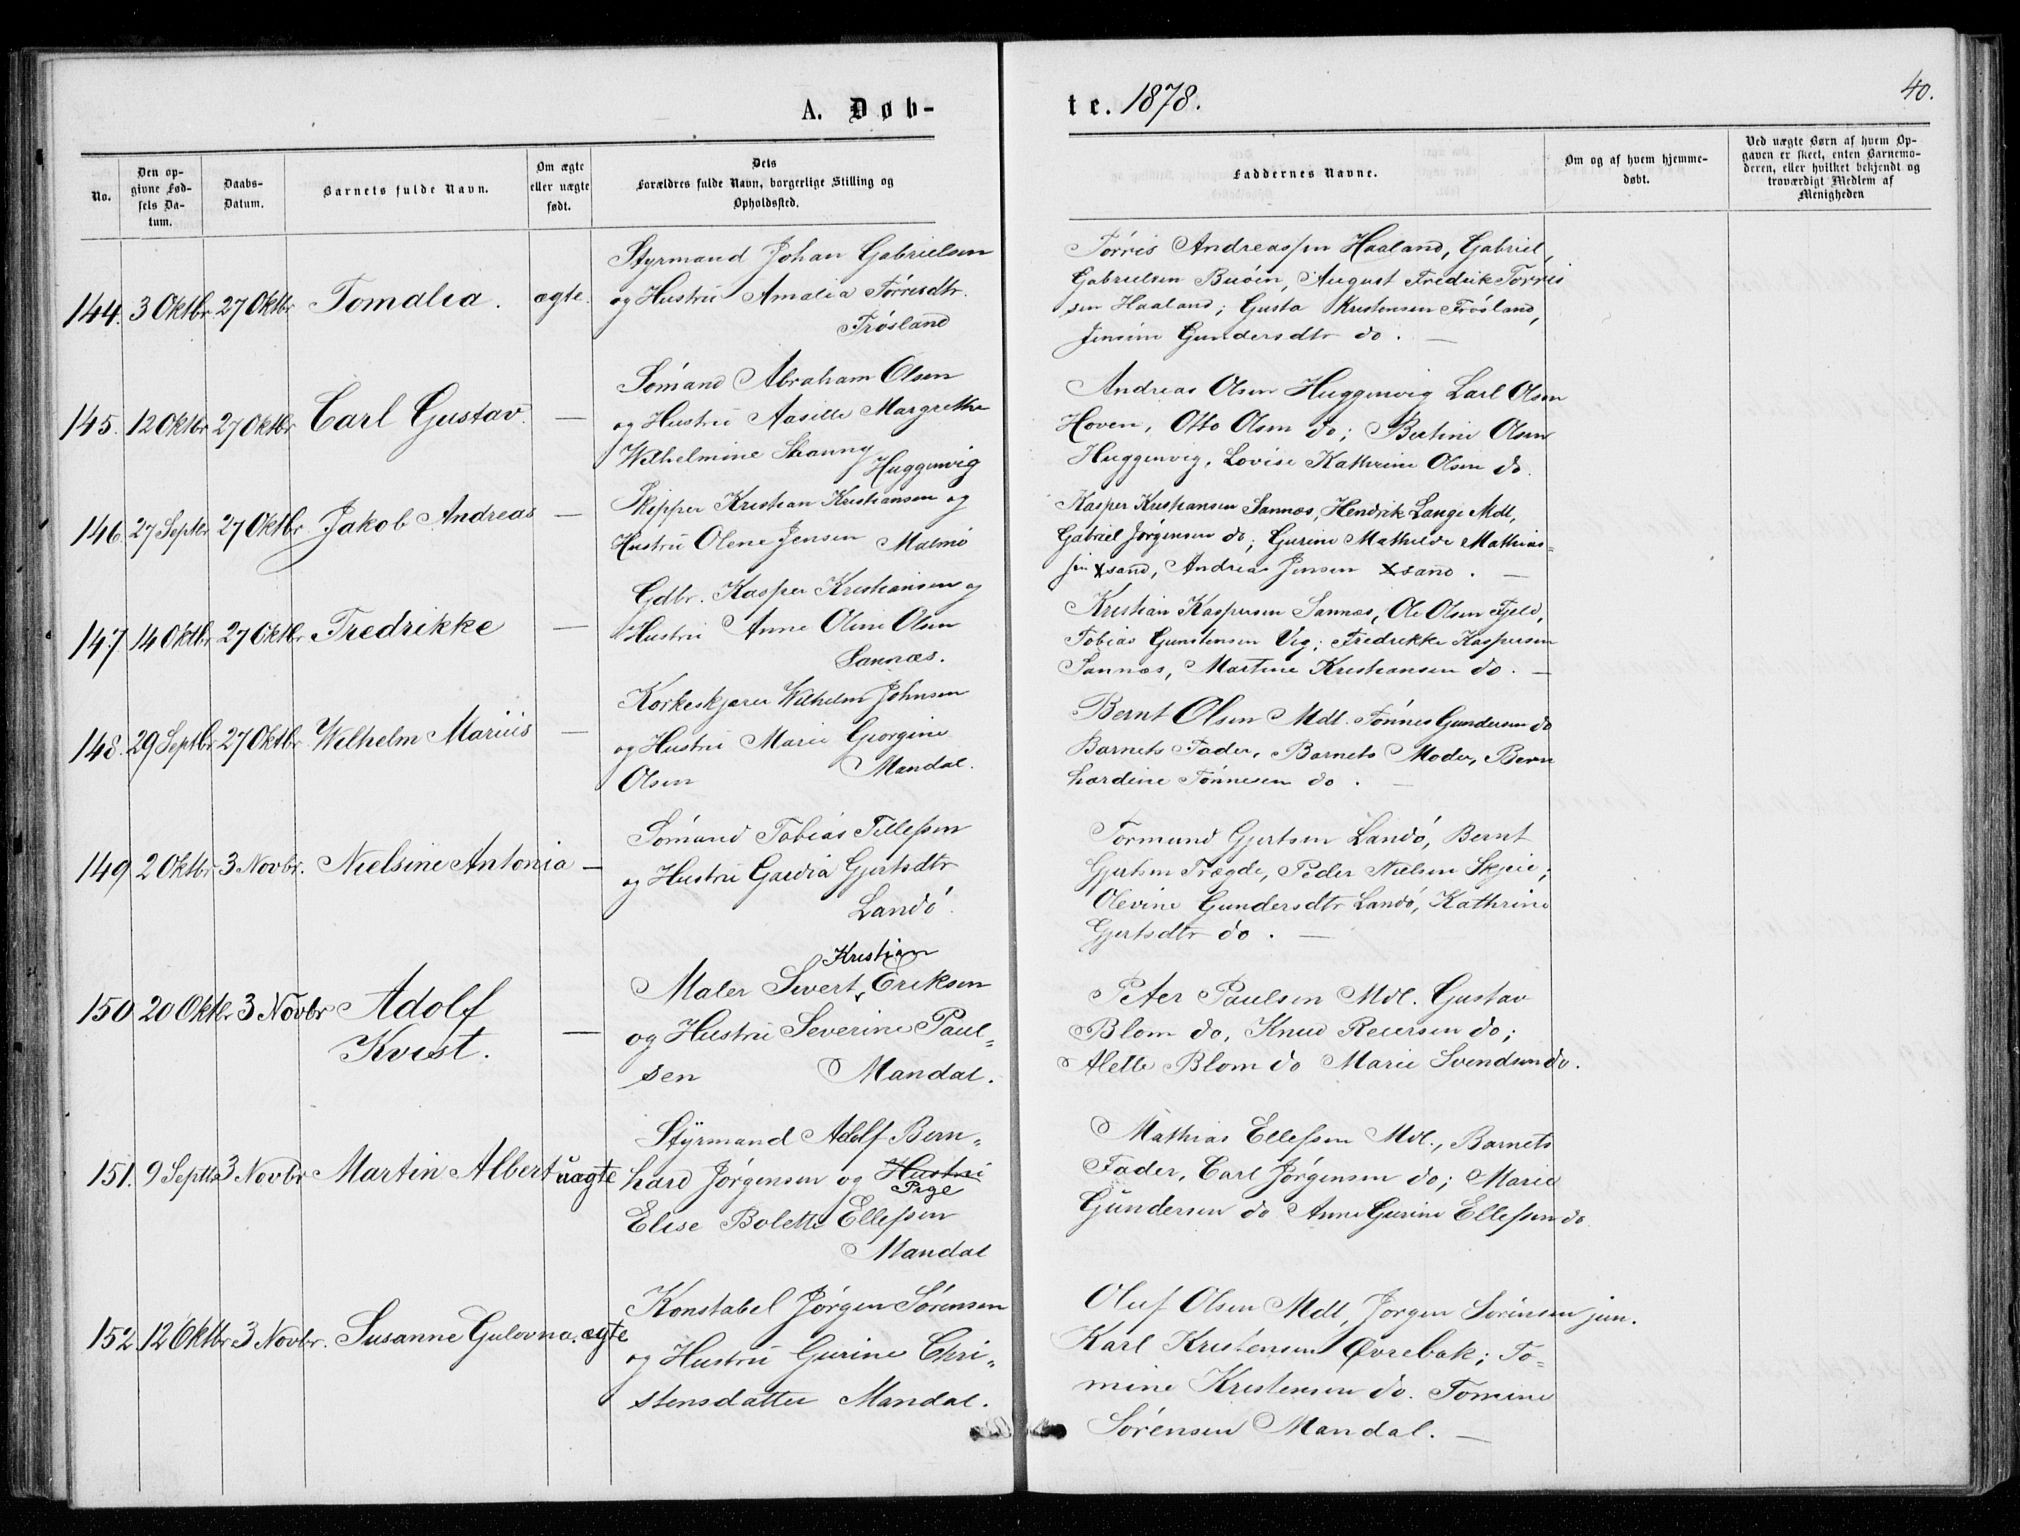 A. Døb-
te. 1878.
40.
No.
Den op-
givne Fød-
sels Da-
tum.
Daabs-
Datum.
Barnets fulde Navn.
Om ægte
eller uægte
født.
Dets
Forældres fulde Navn, borgerlige Stilling og
Opholdssted.
Faddernes Navne.
Om og af hvem hjemme-
døbt.
Ved uægte Børn af hvem Op-
gaven er skeet, enten Barnemo-
deren, eller hvilket bekjendt og
troværdigt Medlem af
Menigheden
144. 3 Oktbr 27 Oktbr Tomalia. ægte.
Styrmand Johan Gabrielsen
og Hustru Amalia Tørresdtr.
Frøsland
Tørris Andreassen Haaland, Gabriel
Gabrielsen Buøen, August Fredrik Torris
sen Haaland; Gusta Kristensen Frøsland,
Jensine Gundersdtr do. —
145. 12 Oktbr 27 Oktbr Carl Gustav. —
Sømand Abraham Olsen
og Hustru Aasille Margrethe
Wilhelmine Huggenvig
Andreas Olsen Huggenvig Carl Olsen
Hoven, Otto Olsen do; Bertine Olsen
Huggenvig, Lovise Kathrine Olsen do.
146. 27 Septbr 27 Oktbr Jakob Andreas —
Skipper Kristian Kristiansen og
Hustru Olene Jensen Malmö
Kasper Kristiansen Sannæs, Hendrik Lange Mdl,
Gabriel Jørgensen do; Gurine Mathilde Mathias-
sen Xsand, Andreas Jensen Xsand. —
147. 14 Oktbr 27 Oktbr Fredrikke —
Gdbr. Kasper Kristiansen og
Hustru Anne Oline Olsen
Sannæs.
Kristian Kaspersen Sannæs, Ole Olsen Fjeld,
Tobias Gunstensen Vig; Fredrikke Kaspersen
Sannæs, Martine Kristiansen do. —
148. 29 Septbr 27 Oktbr Wilhelm Marius —
Korkeskjærer Wilhelm Johnsen
og Hustru Marie Georgine
Olsen Mandal.
Bernt Olsen Mdl. Tønnes Gundersen do
Barnets Fader, Barnets Moder, Bern
hardine Tønnesen do. —
149 2 Oktbr 3 Novbr. Nielsine Antonia —
Sømand Tobias Tellefsen
og Hustru Gjertsdtr
Landø.
Tormund Gjertsen Landø, Bernt
Gjertsen Trægde, Peder Nielsen Skjeie;
Olevine Gundersdtr Landø, Kathrine
Gjertsdtr do. —
150 20 Oktbr 3 Novbr Adolf
Kvist. —
Kristian
Maler Sivert Eriksen
og Hustru Severine Paul-
sen Mandal.
Peter Paulsen Mdl. Gustav
Blom do, Knud Reiersen do;
Alette Blom do Marie Svendsen do.
151. 9 Septbr 3 Novbr Martin Albert uægte
Styrmand Adolf Bern-
hard Jørgensen og Hustru
Pige
Elise Bolette Ellefsen
Mandal
Mathias Ellefsen Mdl., Barnets
Fader, Carl Jørgensen do; Marie
Gundersen do Anne Gurine Ellefsen do
152. 12 Oktbr 3 Novbr. Susanne Gulovna. ægte
Konstabel Jørgen Sørensen
og Hustru Gurine Chri-
stensdatter Mandal.
Oluf Olsen Mdl, Jørgen Sørensen jun.
Karl Kristensen Øvrebøk; To-
mine Kristensen do. Tomine
Sørensen Mandal. —